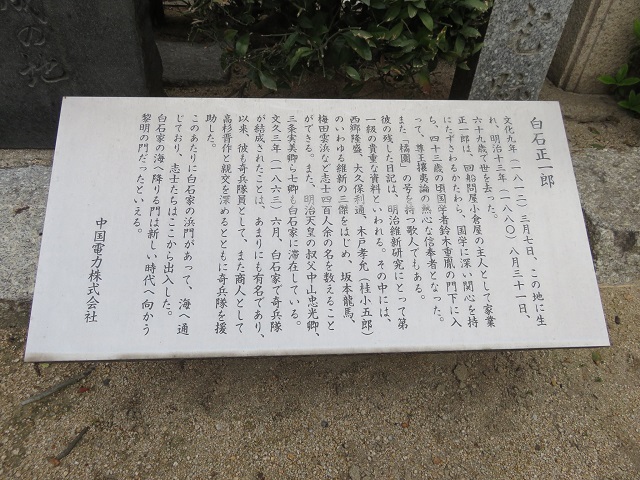 白石正一郎
文化九年(一八一二)三月七日、この地に生
れ、明治十三年(一八八〇)八月三十一日、
六十九歳で世を去った。
正一郎は、回船問屋小倉屋の主人として家業
にたずさわるかたわら、国学に深い関心を持
ち、四十三歳の頃国学者鈴木重胤の門下に入
って、尊王攘夷論の熱心な信奉者となった。
また、「橘園」の号を持つ歌人でもある。
彼の残した日記は、明治維新研究にとって第
一級の貴重な資料といわれる。その中には、
西郷隆盛、大久保利通、木戸孝允(桂小五郎)
のいわゆる維新の三傑をはじめ、坂本龍馬、
梅田雲浜など志士四百人余の名を数えること
ができる。また、明治天皇の叔父中山忠光卿、
三条実美卿ら七卿も白石家に滞在している。
文久三年(一八六三)六月、白石家で奇兵隊
が結成されたことは、あまりにも有名であり、
以来、彼も奇兵隊員として、また商人として
高杉晋作と親交を深めるとともに奇兵隊を援
助した。
このあたりに白石家の浜門があって、海へ通
じており、志士たちはここから出入した。
白石家の海へ降りる門は新しい時代へ向かう
黎明の門だったといえる。
中国電力株式会社
の地